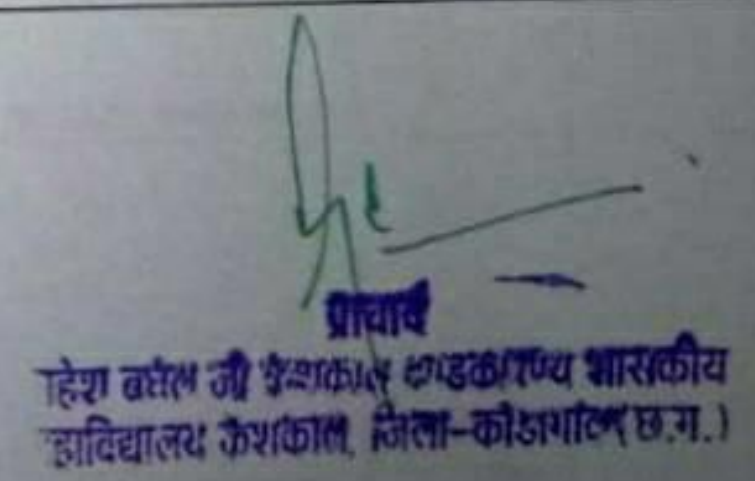 प्राचार्य
हेश बघेल जी केशकाल दण्डकारण्य शासकीय
हाविद्यालय केशकाल, जिला-कोंडागांव(छ.ग.)